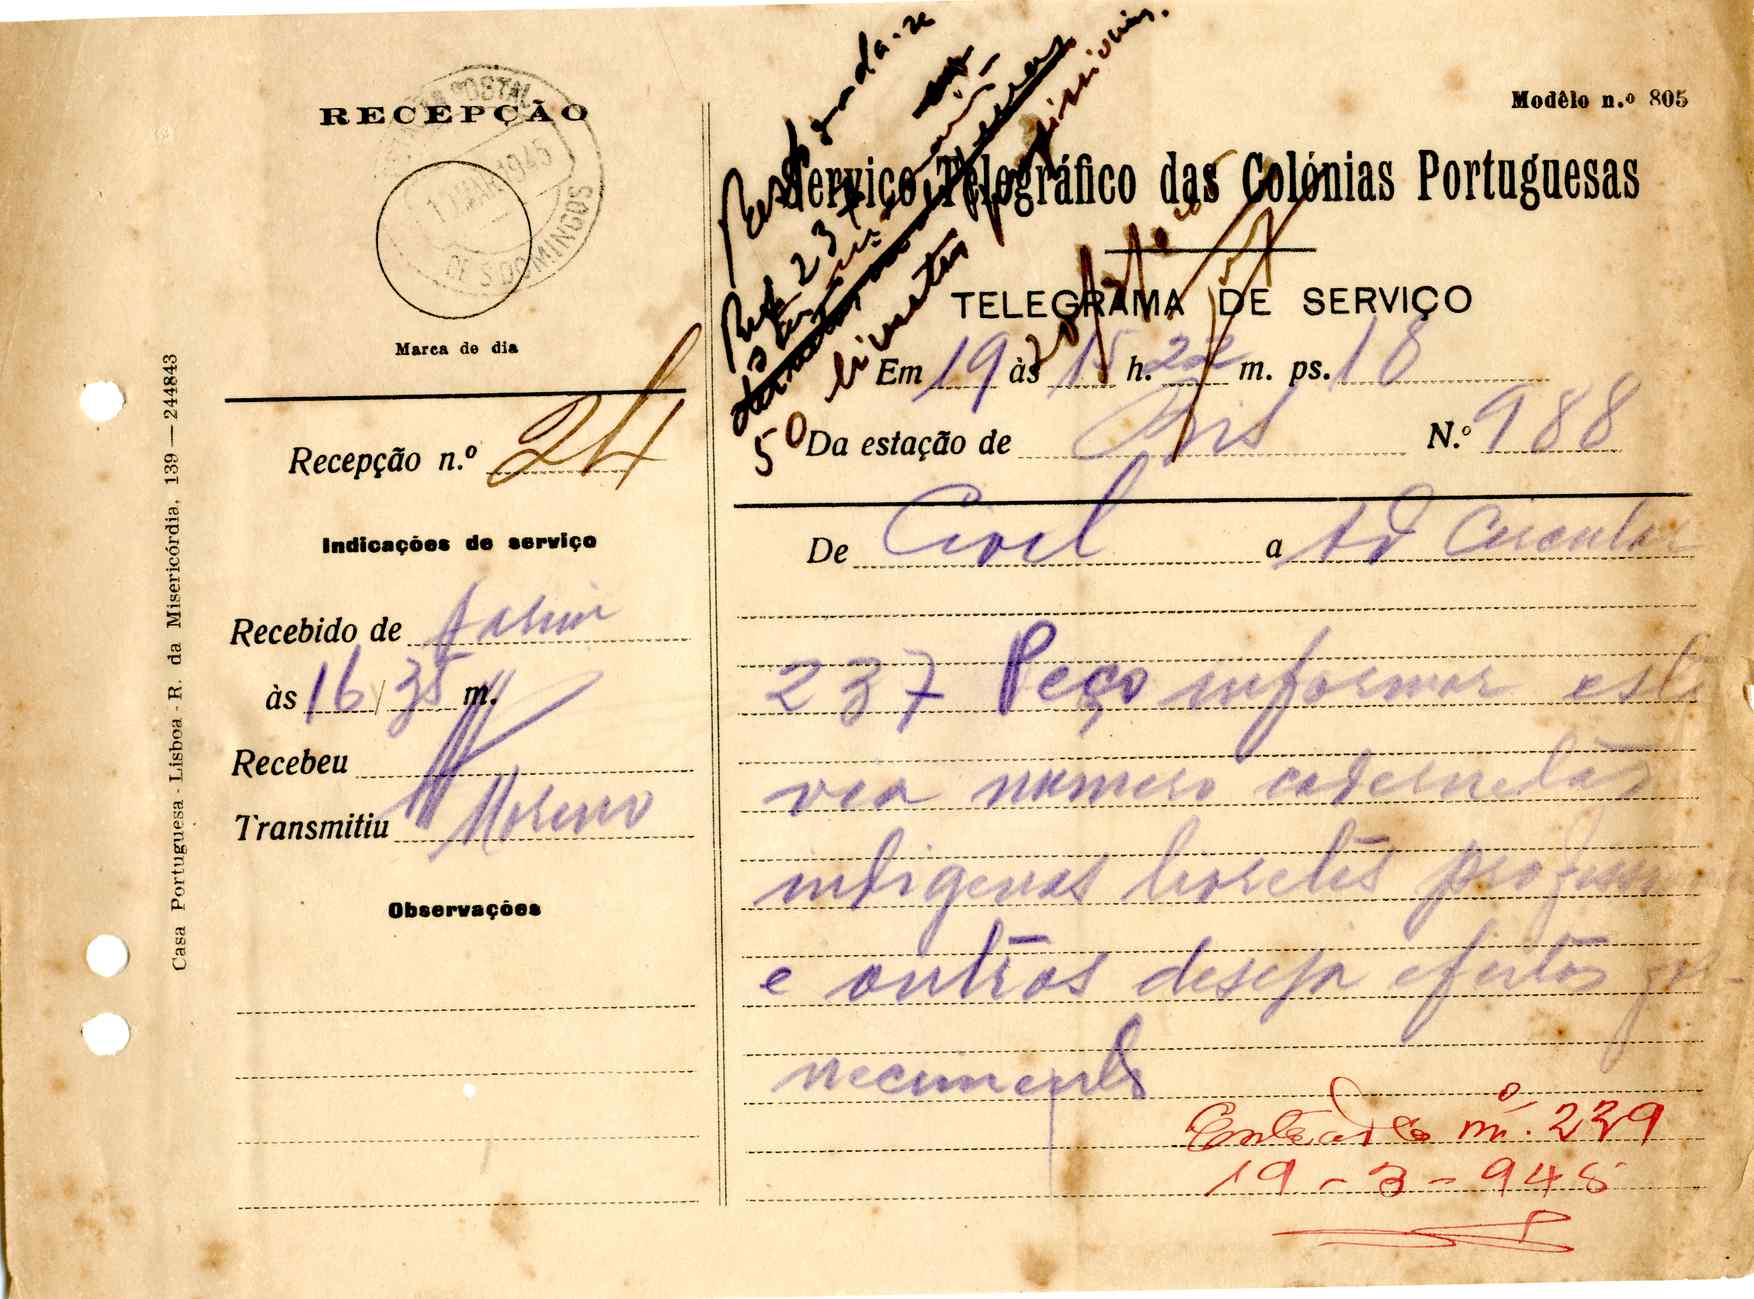 Modêlo n.º 805
RECEPÇÃO
POSTAL
MAR 1945
DE S. DOMINGOS
Marca de dia
Recepção n.º 24
Indicações de serviço
Recebido de
às 16/35 m.
Recebeu
Transmitiu Moreno
Observações
Casa Portuguesa - Lisboa - R. da Misericórdia, 139 — 244843
Responda-se
Ref 237
50 bissaicas provisórias.
Serviço Telegráfico das Colónias Portuguesas
TELEGRAMA DE SERVIÇO
Em 19 às 15 h. 22 m. ps. 18
Da estação de N.º 988
De Civil a Ad Circular
237 Peço informar esta
via numero cadernetas
indigenas
e outros deseja efeitos for-
necimento
Entrada nº. 239
19-3-945